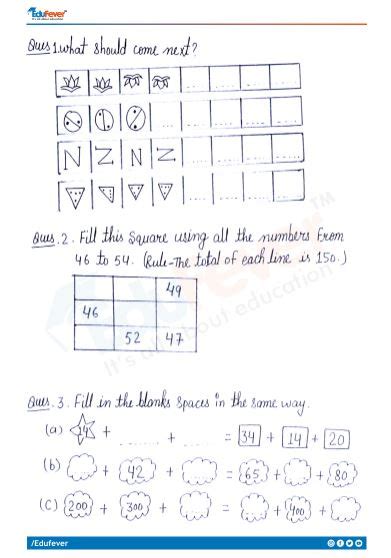 EduFever
It's all about education
Ques 1. What should come next?
N Z N Z
Ques. 2. Fill this square using all the numbers from
46 to 54. (Rule-The total of each line is 150.)
49
46
52 47
Ques. 3. Fill in the blanks spaces in the same way.
(a) 14 + ........ + ...... = 34 + 14 + 20
(b) + 42 + = 65 + + 80
(C) 200 + 300 + = + 400 +
EduFever™
It's all about education
/Edufever